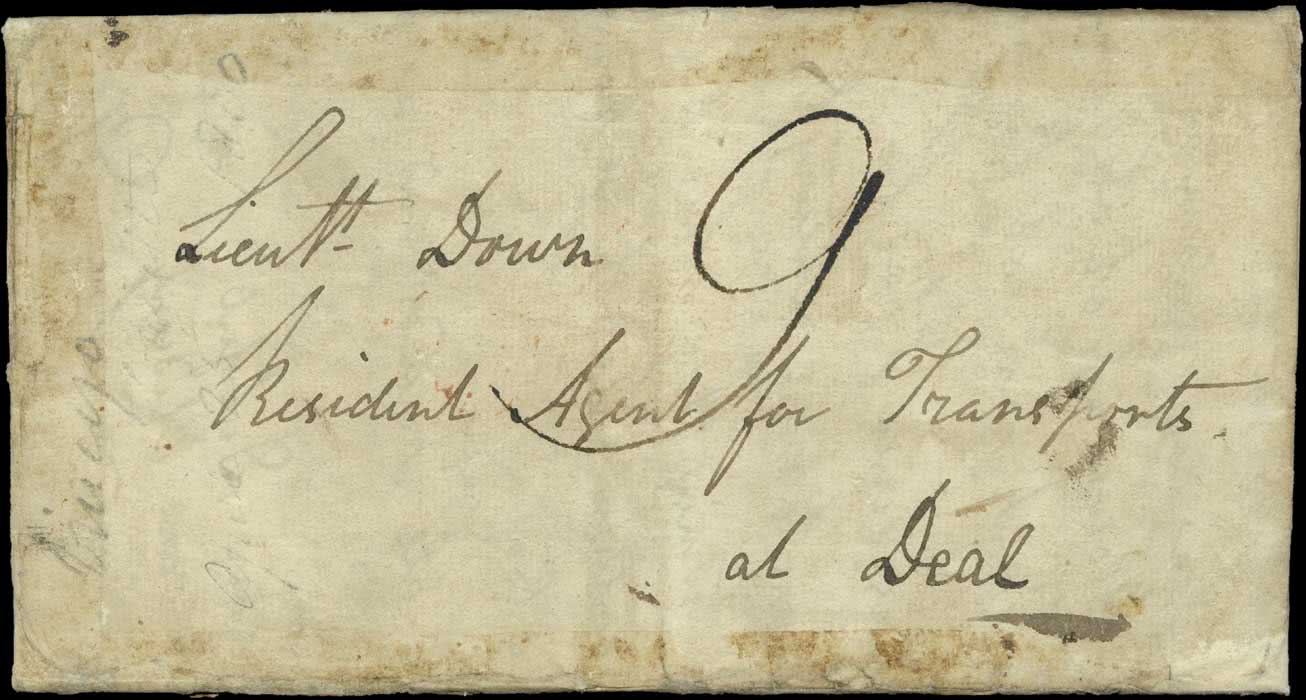 Lieutt. Down
9
Resident Agent for Transports
at Deal